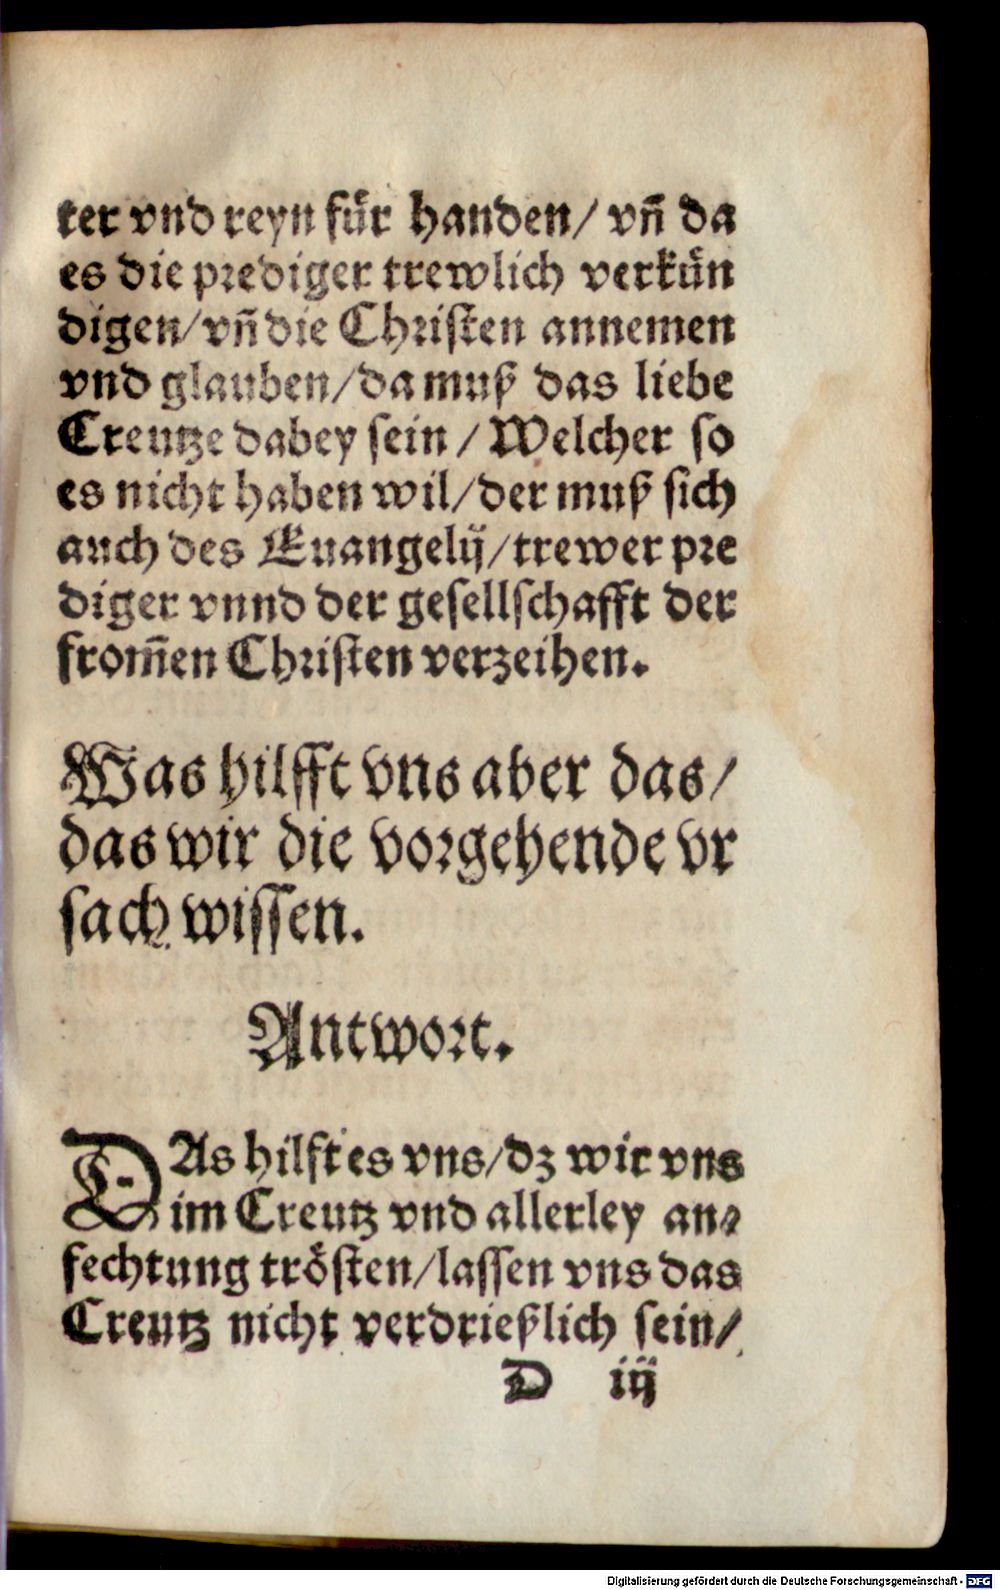 ter vnd reyn für handen/ vn̄ da
es die prediger trewlich verkün
digen/ vn̄ die Christen annemen
vnd glauben/ da muß das liebe
Creutze dabey sein / Welcher so
es nicht haben wil/ der muß sich
auch des Euangelij/ trewer pre
diger vnnd der gesellschafft der
from̄en Christen verzeihen.
Was hilfft vns aber das/
das wir die vorgehende vr
sach wissen.
Antwort.
DAs hilft es vns/ dz wir vns
im Creutz vnd allerley an⸗
fechtung trösten/ lassen vns das
Creutz nicht verdrießlich sein/
D iij
Digitalisierung gefördert durch die Deutsche Forschungsgemeinschaft - DFG